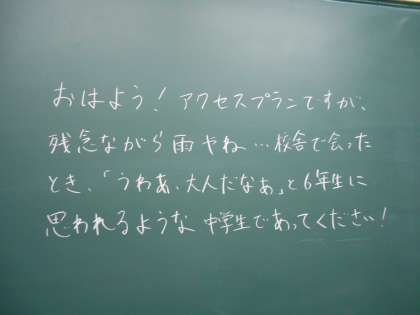 おはよう！アクセスプランですが、
残念ながら雨やね…校舎で会った
とき、「うわあ、大人だなぁ」と6年生に
思われるような中学生であってください！